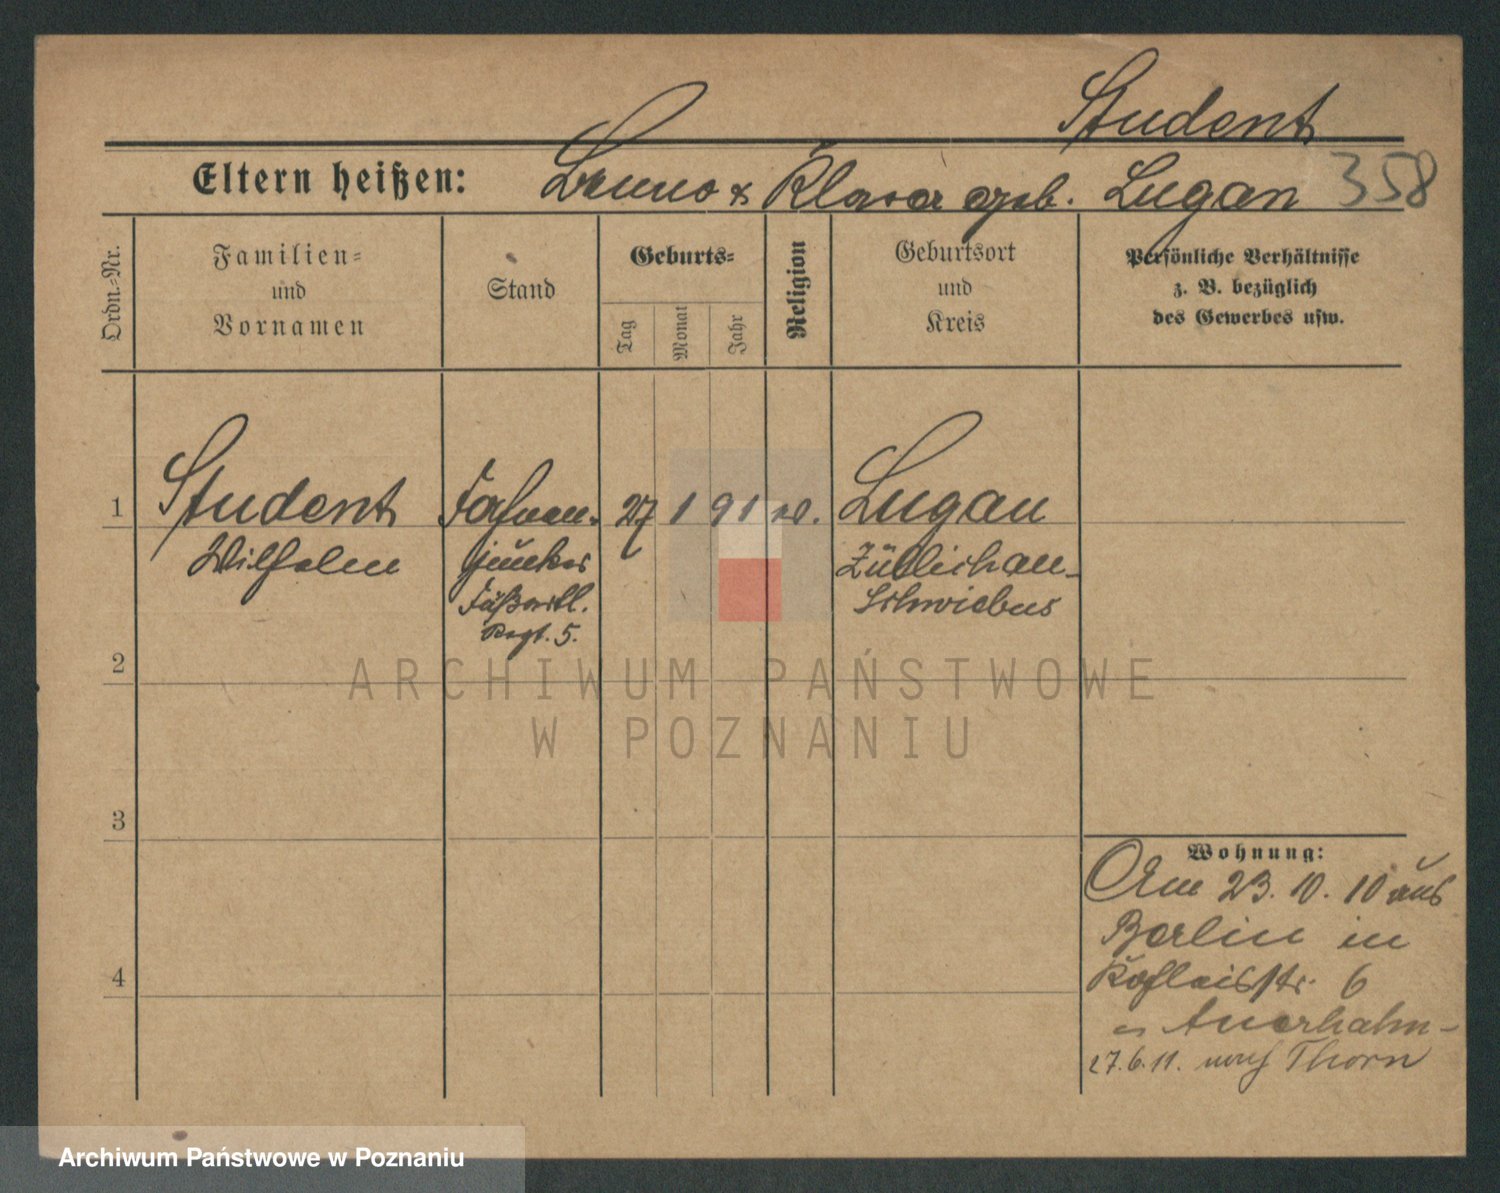 Student
Eltern heißen: Bruno & Klara geb. Lugau 358
Ordn.-Nr.
Familien-
und
Vornamen
Stand
Geburts-
Tag
Monat
Jahr
Religion
Geburtsort
und
Kreis
Persönliche Verhältnisse
z. B. bezüglich
des Gewerbes usw.
1 Student Fahnen- 27 1 91 Lugau
Wilhelm junker Züllichau-
Fußartl. Schwiebus
Regt. 5.
2
ARCHIWUM PAŃSTWOWE
W POZNANIU
3
Wohnung:
Am 23. 10. 10 aus
Berlin in
4
6
Auerhahn-
27.6.11. nach Thorn
Archiwum Państwowe w Poznaniu